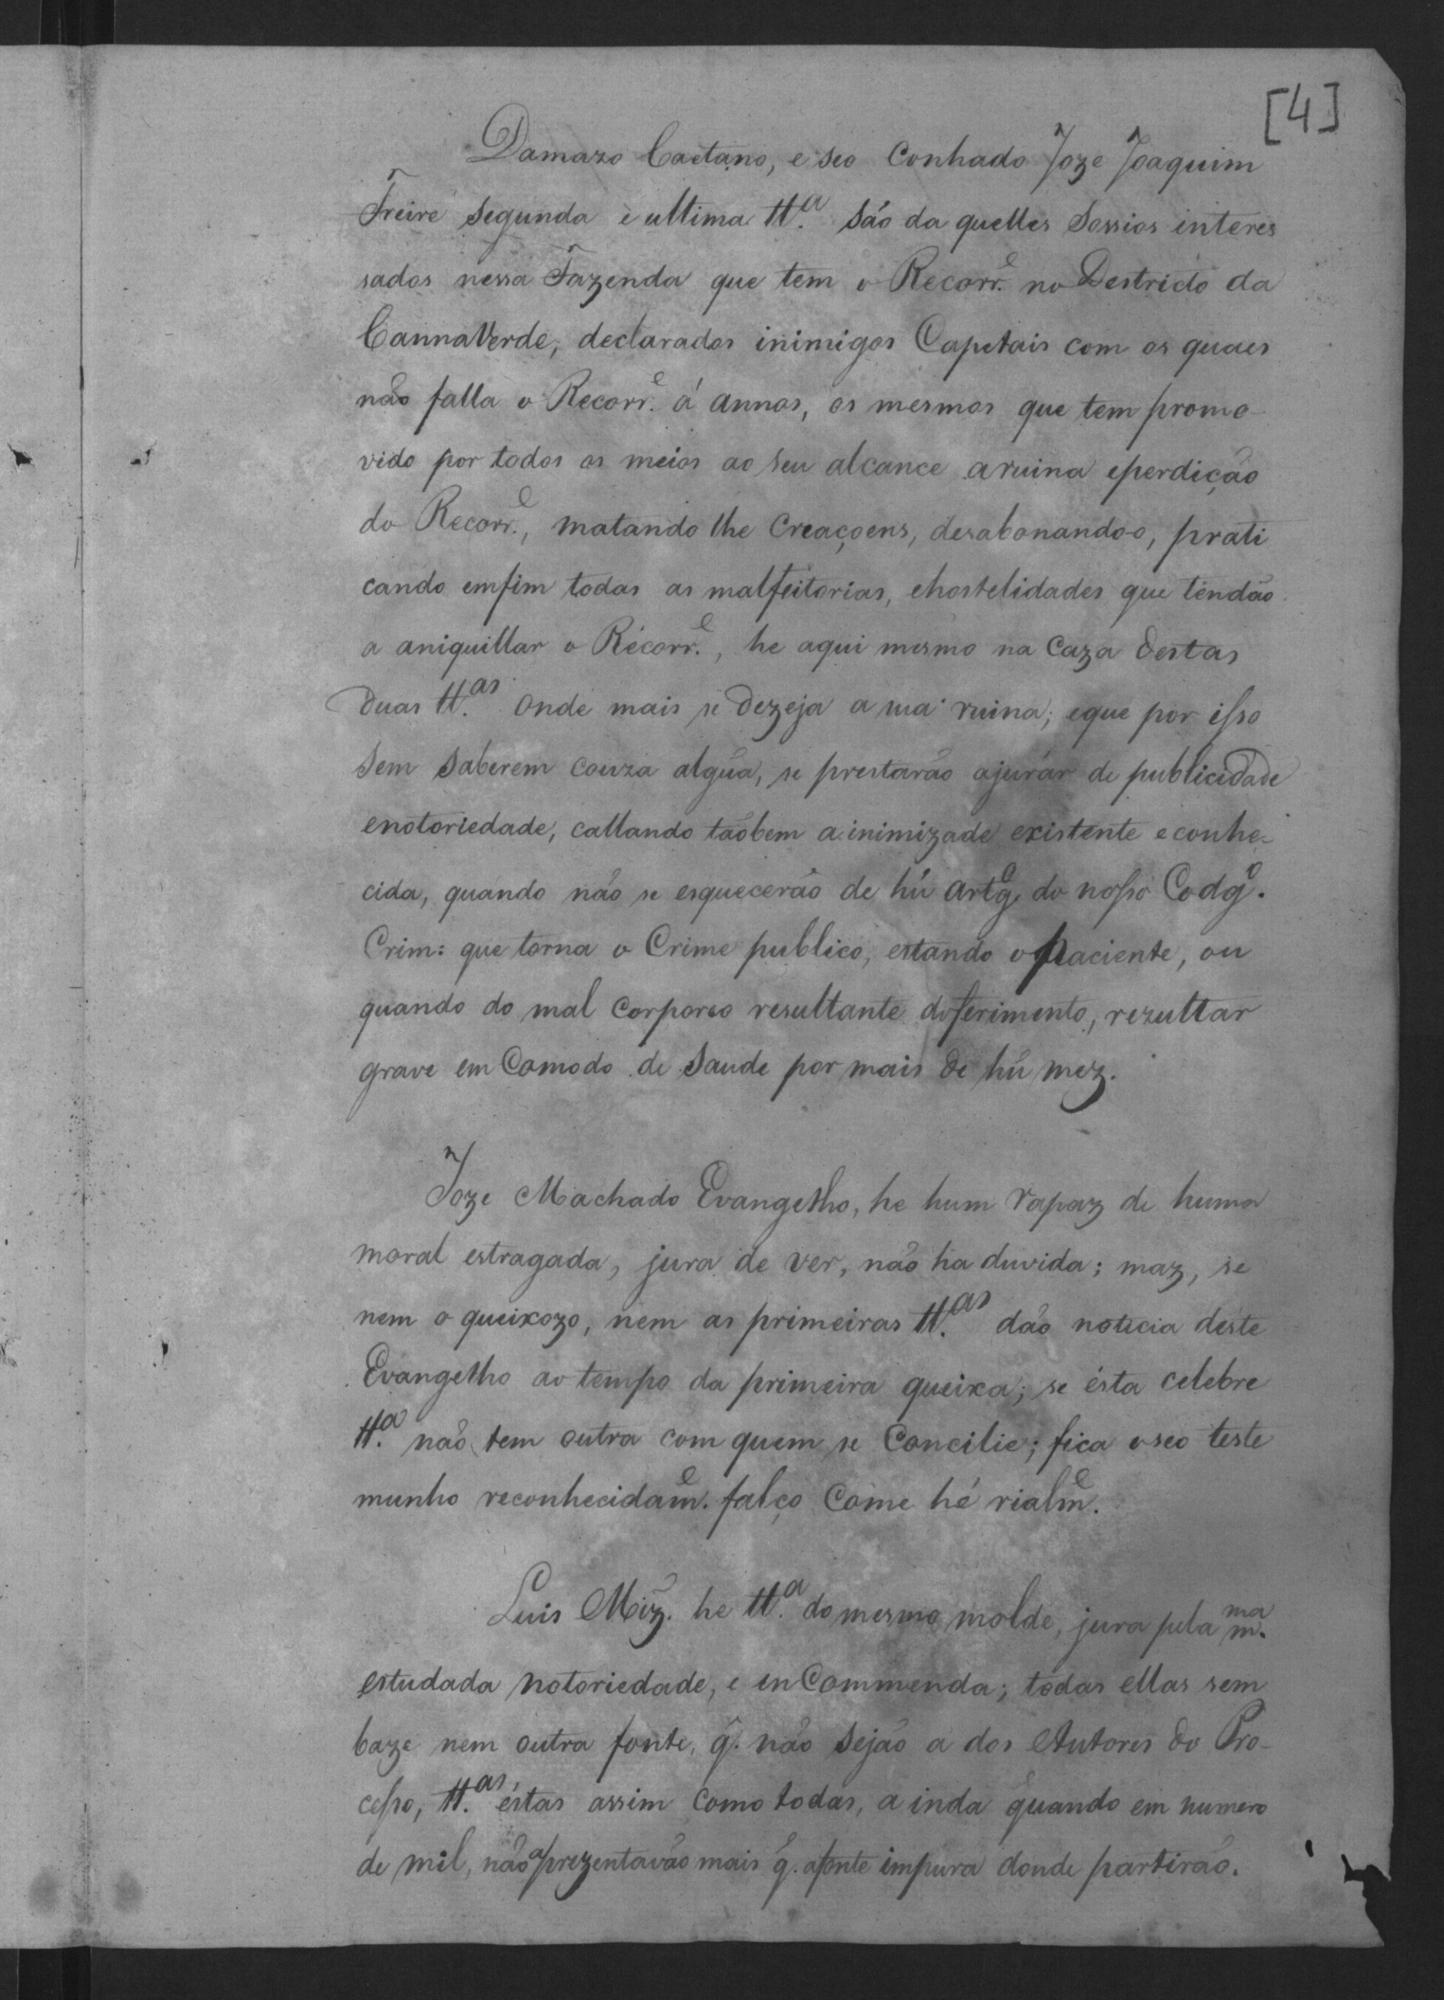 [4]
Damazo Caetano, e seo Conhado Joze Joaquim
Freire segunda e ultima tt.ª são da quelles Sossios interes
sados nessa Fazenda que tem o Recorr.e no Destricto da
CannaVerde, declarados inimigos Capetais com os quaes
não falla o Recorr.e á annos, os mesmos que tem promo-
vido por todos os meios ao seu alcance a ruina eperdição
do Recorr.e, matando lhe Creaçoens, desabonando-o, prati
cando emfim todas as malfeitorias, ehostelidades que tendão
a aniquillar o Recorr.e, he aqui mesmo na Caza destas
duas tt.as onde mais se dezeja a sua ruina; eque por isso
sem saberem couza algũa, se prestarão ajurár de publicidade
enotoriedade, callando taõbem a inimizade existente e conhe-
cida, quando não se esquecerão de hú artg.o do nosso Codg.o
Crim: que torna o Crime publico, estando o paciente, ou
quando do mal Corporeo resultante do ferimento, rezultar
grave em Comodo de Saude por mais de hú mez.
Joze Machado Evangelho, he hum rapaz de huma
moral estragada, jura de ver, não ha duvida; maz, se
nem o queixozo, nem as primeiras tt.as dão noticia deste
Evangelho ao tempo da primeira queixa; se ésta celebre
tt.ª não tem outra com quem se Concilie; fica o seo teste
munho reconhecidam.e falço Come hé rialm.e
Luis Miz̃. he tt.ª do mesmo molde, jura pela m.ma
estudada notoriedade, e enCommenda; todas ellas sem
baze nem outra fonte, q̃. não sejão a dos Autores do Pro-
cesso, tt.as éstas assim Como todas, a inda quando em numero
de mil, não aprezentavão mais q̃. afonte impura donde partirão.